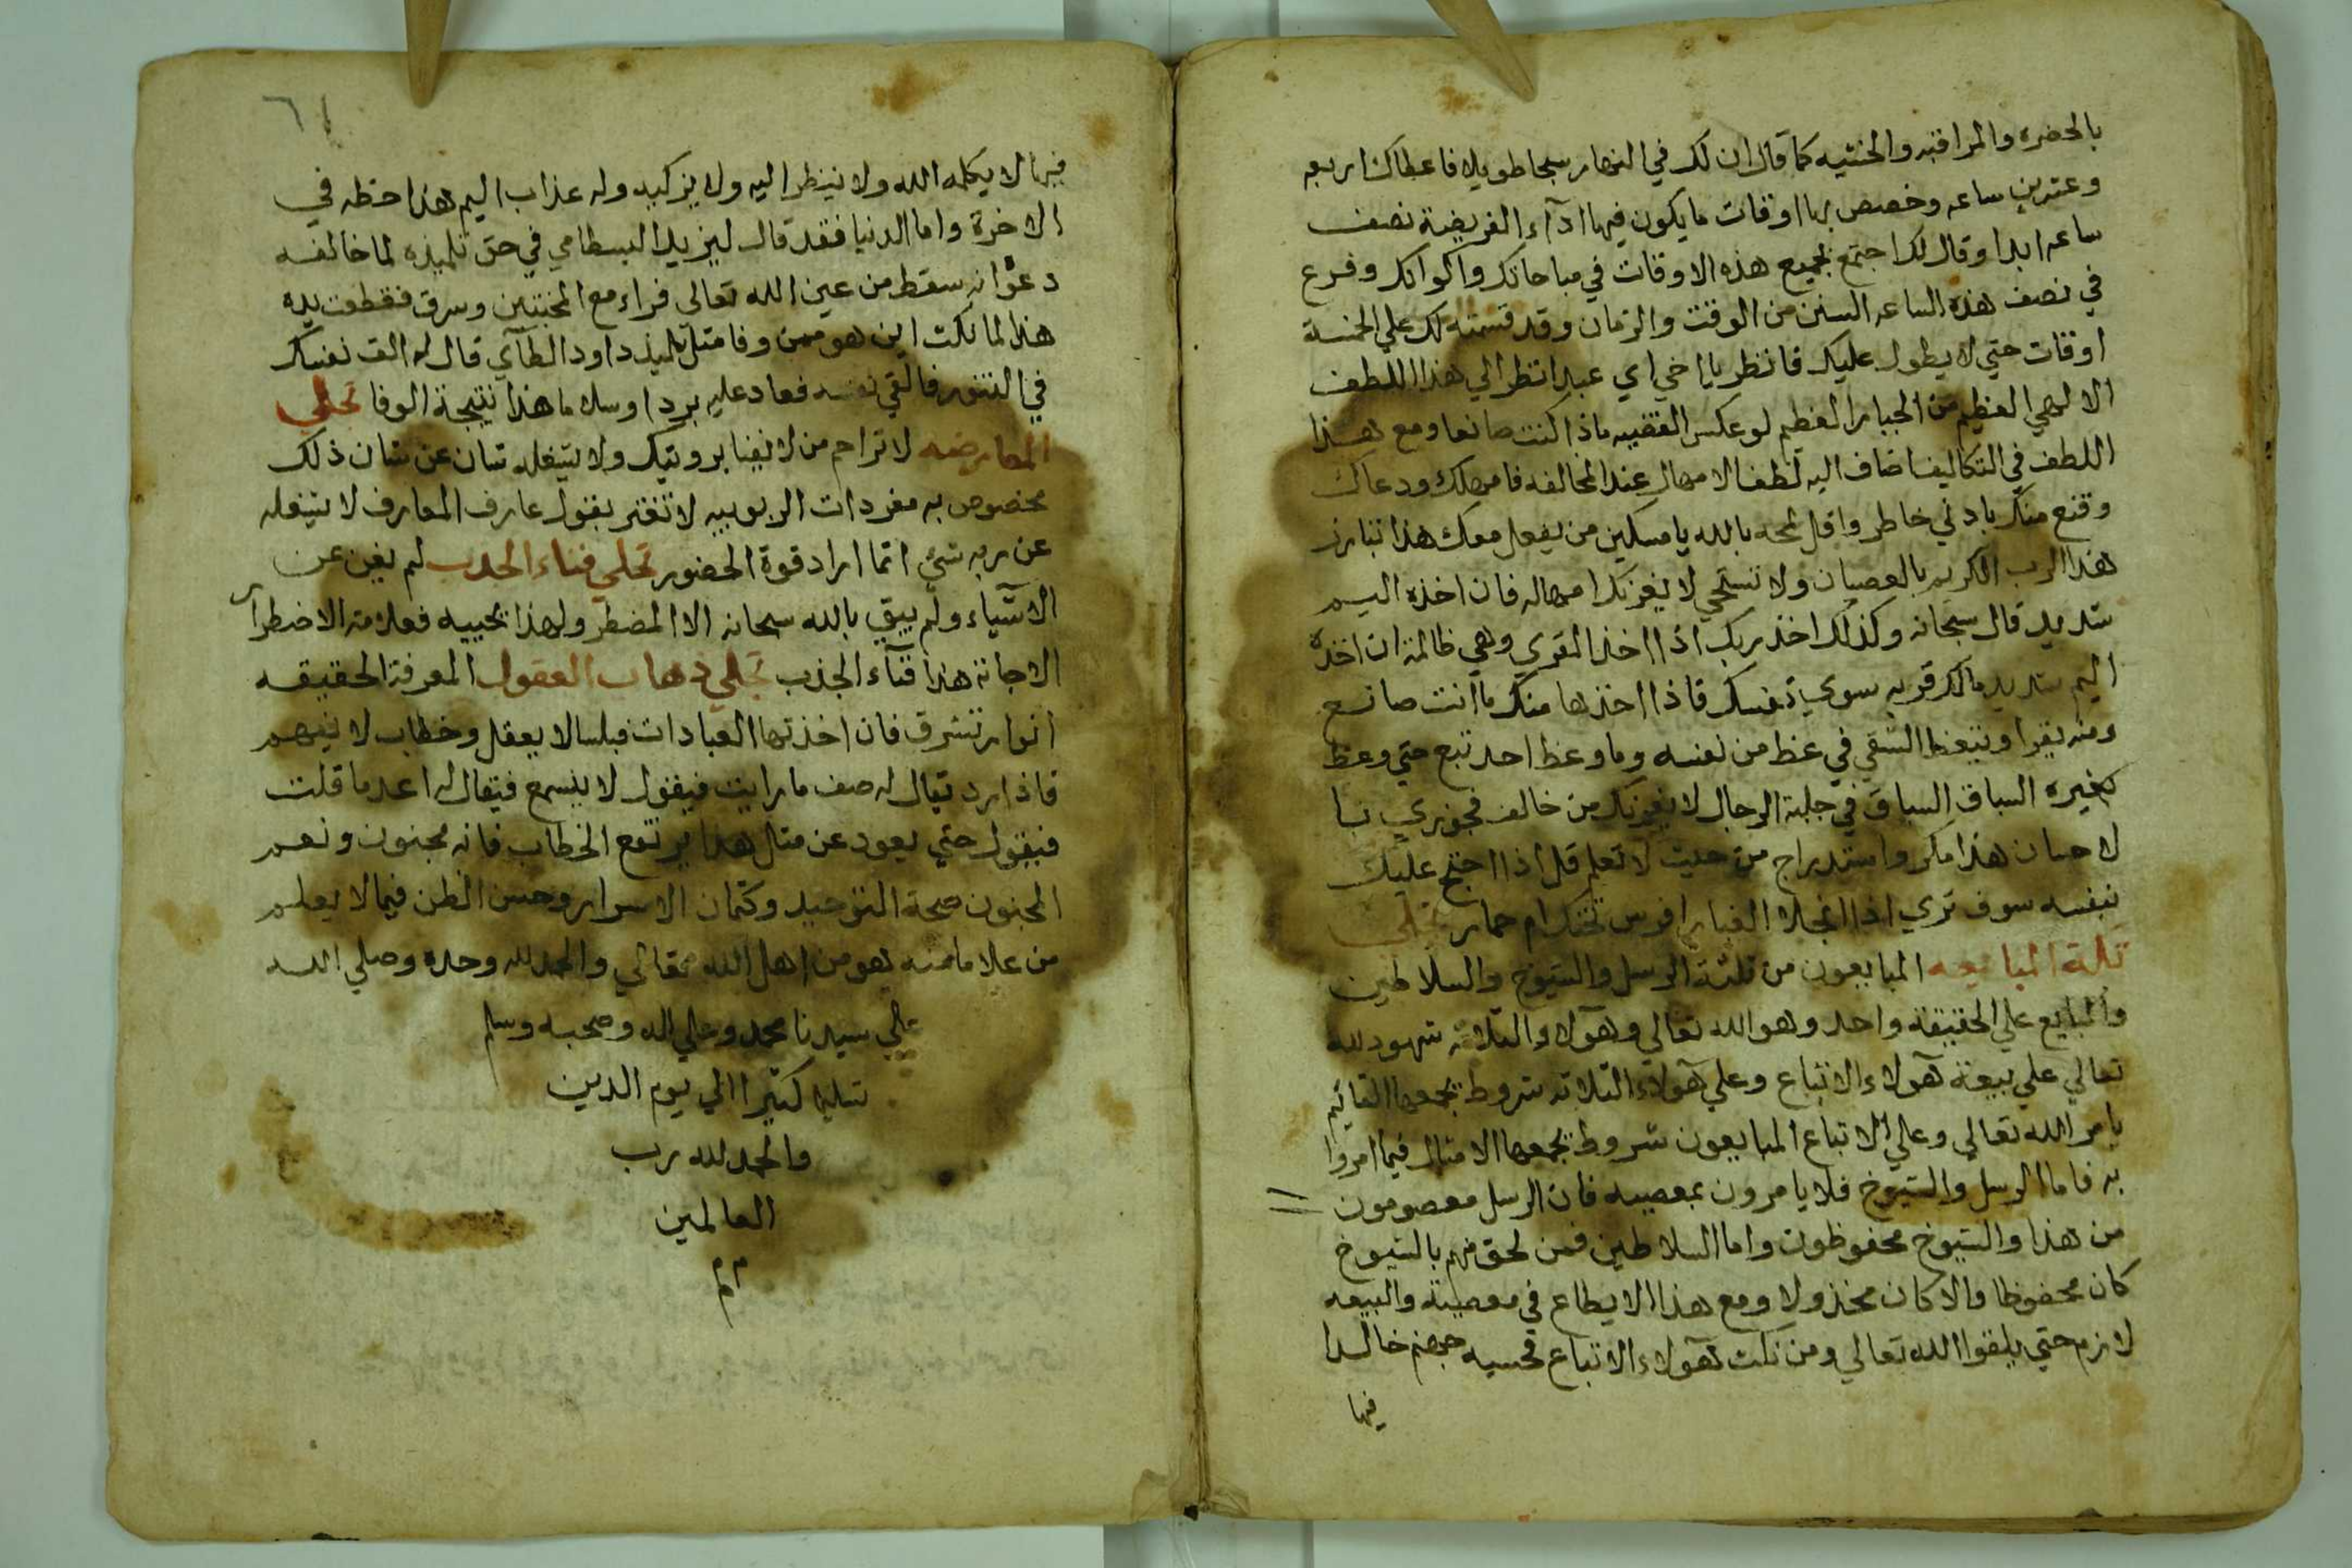 بالحضره والمراقبه والخشيه كما قال ان لك في النهار سبحا طويلا فاعطاك اربعه
وعشرين ساعه وخصص لها اوقات ما يكون فيها ادآء الفريضة نصف
ساعه ابدا وقال لك اجتمع لجميع هذه الاوقات في مباحاتك واكوانك وفرع
في نصف هذه الساعه السنن من الوقت والزمان وقد قسمته لك علي الخمسة
اوقات حتي لا يطول عليك فانظر يا اخي اي عبد انتظر الي هذا اللطف
الالهي العظيم من الجبار العظيم لو عكس القضيه ماذا كنت صانعا ومع هذا
اللطف في التكاليف اضاف اليه لطف الامهال عند المخالفه فامهلك ودعاك
وقنع منك بادني خاطر واقل لمحه بالله يا مسكين من يفعل معك هذا تبارز
هذا الرب الكريم بالعصيان ولا تستحي لا يغرنك امهاله فان اخذه اليم
شديد قال سبحانه وكذلك اخذ ربك اذا اخذ القري وهي ظالمة ان اخذه
اليم شديد مالك قريه سوي نفسك فاذا اخذها منك ما انت صانع
ومنه يقرا ويتعظ الشقي في عظ من نفسه وما وعظ احد تبع حتي وعظ
كغيره السباق السباق في حلبة الرجال لا يغرنك من خالف فجوزي با
لاحسان هذا مكر واستدراج من حيث لا تعلم قل اذا احتج عليك
بنفسه سوف تري اذا انجلا الغبار افرس تحتك ام حمار تجلي
ثلة المبايعه المبايعون من ثلثة الرسل والشيوخ والسلاطين
والمبايع علي الحقيقة واحد وهو الله تعالي وهآولاء الثلاثه شهود لله
تعالي علي بيعة هآولاء الاتباع وعلي هآولاء الثلاثه شروط يجمعها القائيم
بامر الله تعالي وعلي الاتباع المبايعون شروط يجمعها الامتثال فيما امروا
به فاما الرسل والشيوخ فلا يامرون بمعصيه فان الرسل معصومون
من هذا والشيوخ محفوظون واما السلاطين فمن لحق منهم بالشيوخ
كان محفوظا والا كان مخذولا ومع هذا لا يطاع في معصية والبيعه
لازم حتي يلقوا الله تعالي ومن نكث هآولاء الاتباع فحسبه جهنم خالدا
فيها
٦١
فيها لا يكلمه الله ولا ينظر اليه ولا يزكيه وله عذاب اليم هذا حظه في
الاخرة واما الدنيا فقد قال ليزيد البسطامي في حق تلميذه لما خالفه
دعوا نه سقط من عين الله تعالي فراء مع المخنثين وسرق فقطعت يده
هذا لما نكث اين هو ممن وفا مثل تلميذ داود الطآي قال له الق نفسك
في التنور فالقي نفسه فعاد عليه بردا وسلاما هذا نتيجة الوفا تجلي
المعارضه لا تزاحم من لا يفنا برويتك ولا يشغله شان عن شان ذلك
مخصوص به مفردات الربوبيه لا تغتر بقول عارف المعارف لا يشغله
عن ربه شئ انما اراد قوة الحضور تجلي فناء الجدب لم يغن عن
الاشياء ولم يبق بالله سبحانه الا المضطر ولهذا يجيبه فعلامة الاضطرار
الاجابة هذا فنآء الجذب تجلي ذهاب العقول المعرفة الحقيقه
انوار تشرق فان اخذتها العبادات فبلسا لا يعقل وخطاب لا يفهم
فاذا رد يقال له صف ما رايت فيقول لا يسمع فيقال له اعد ما قلت
فيقول حتي يعود عن مثل هذا يرتفع الخطاب فانه مجنون ونعم
المجنون صحة التوحيد وكتمان الاسرار وحسن الظن فيما لا يعلم
من علاماته هو من اهل الله مقالي والحمد لله وحده وصلي الله
علي سيدنا محمد وعلي اله وصحبه وسلم
تسليما كثيرا الي يوم الدين
والحمد لله رب
العالمين